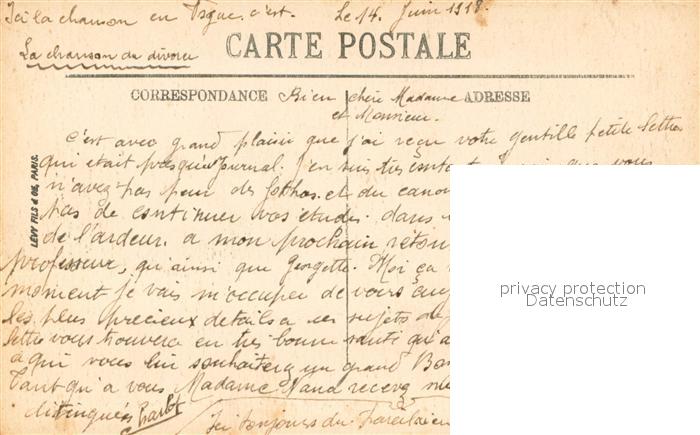 Ici la chanson en vogue c'est. Le 14 Juin 1918.
La chanson du divorce
CARTE POSTALE
CORRESPONDANCE Bien chère Madame ADRESSE
et Monsieur.
C'est avec grand plaisir que j'ai reçu votre gentille petite lettre
qui était presqu'un Journal. J'en suis très content que vous
n'avez pas peur des Gothas et du canon
pas de continuer vos études. dans
de l'ardeur. a mon prochain
professeur, qu'ainsi que Georgette. Moi ça
moment je vais m'occuper de vous
les plus précieux details a ces sujets
lettre vous trouvera en très bonne santé
à qui vous lui souhaiterez un grand
Tant qu'a vous Madame Nana recevez
distingués
Ici toujours du
LEVY FILS & CIE, PARIS.
privacy protection
Datenschutz